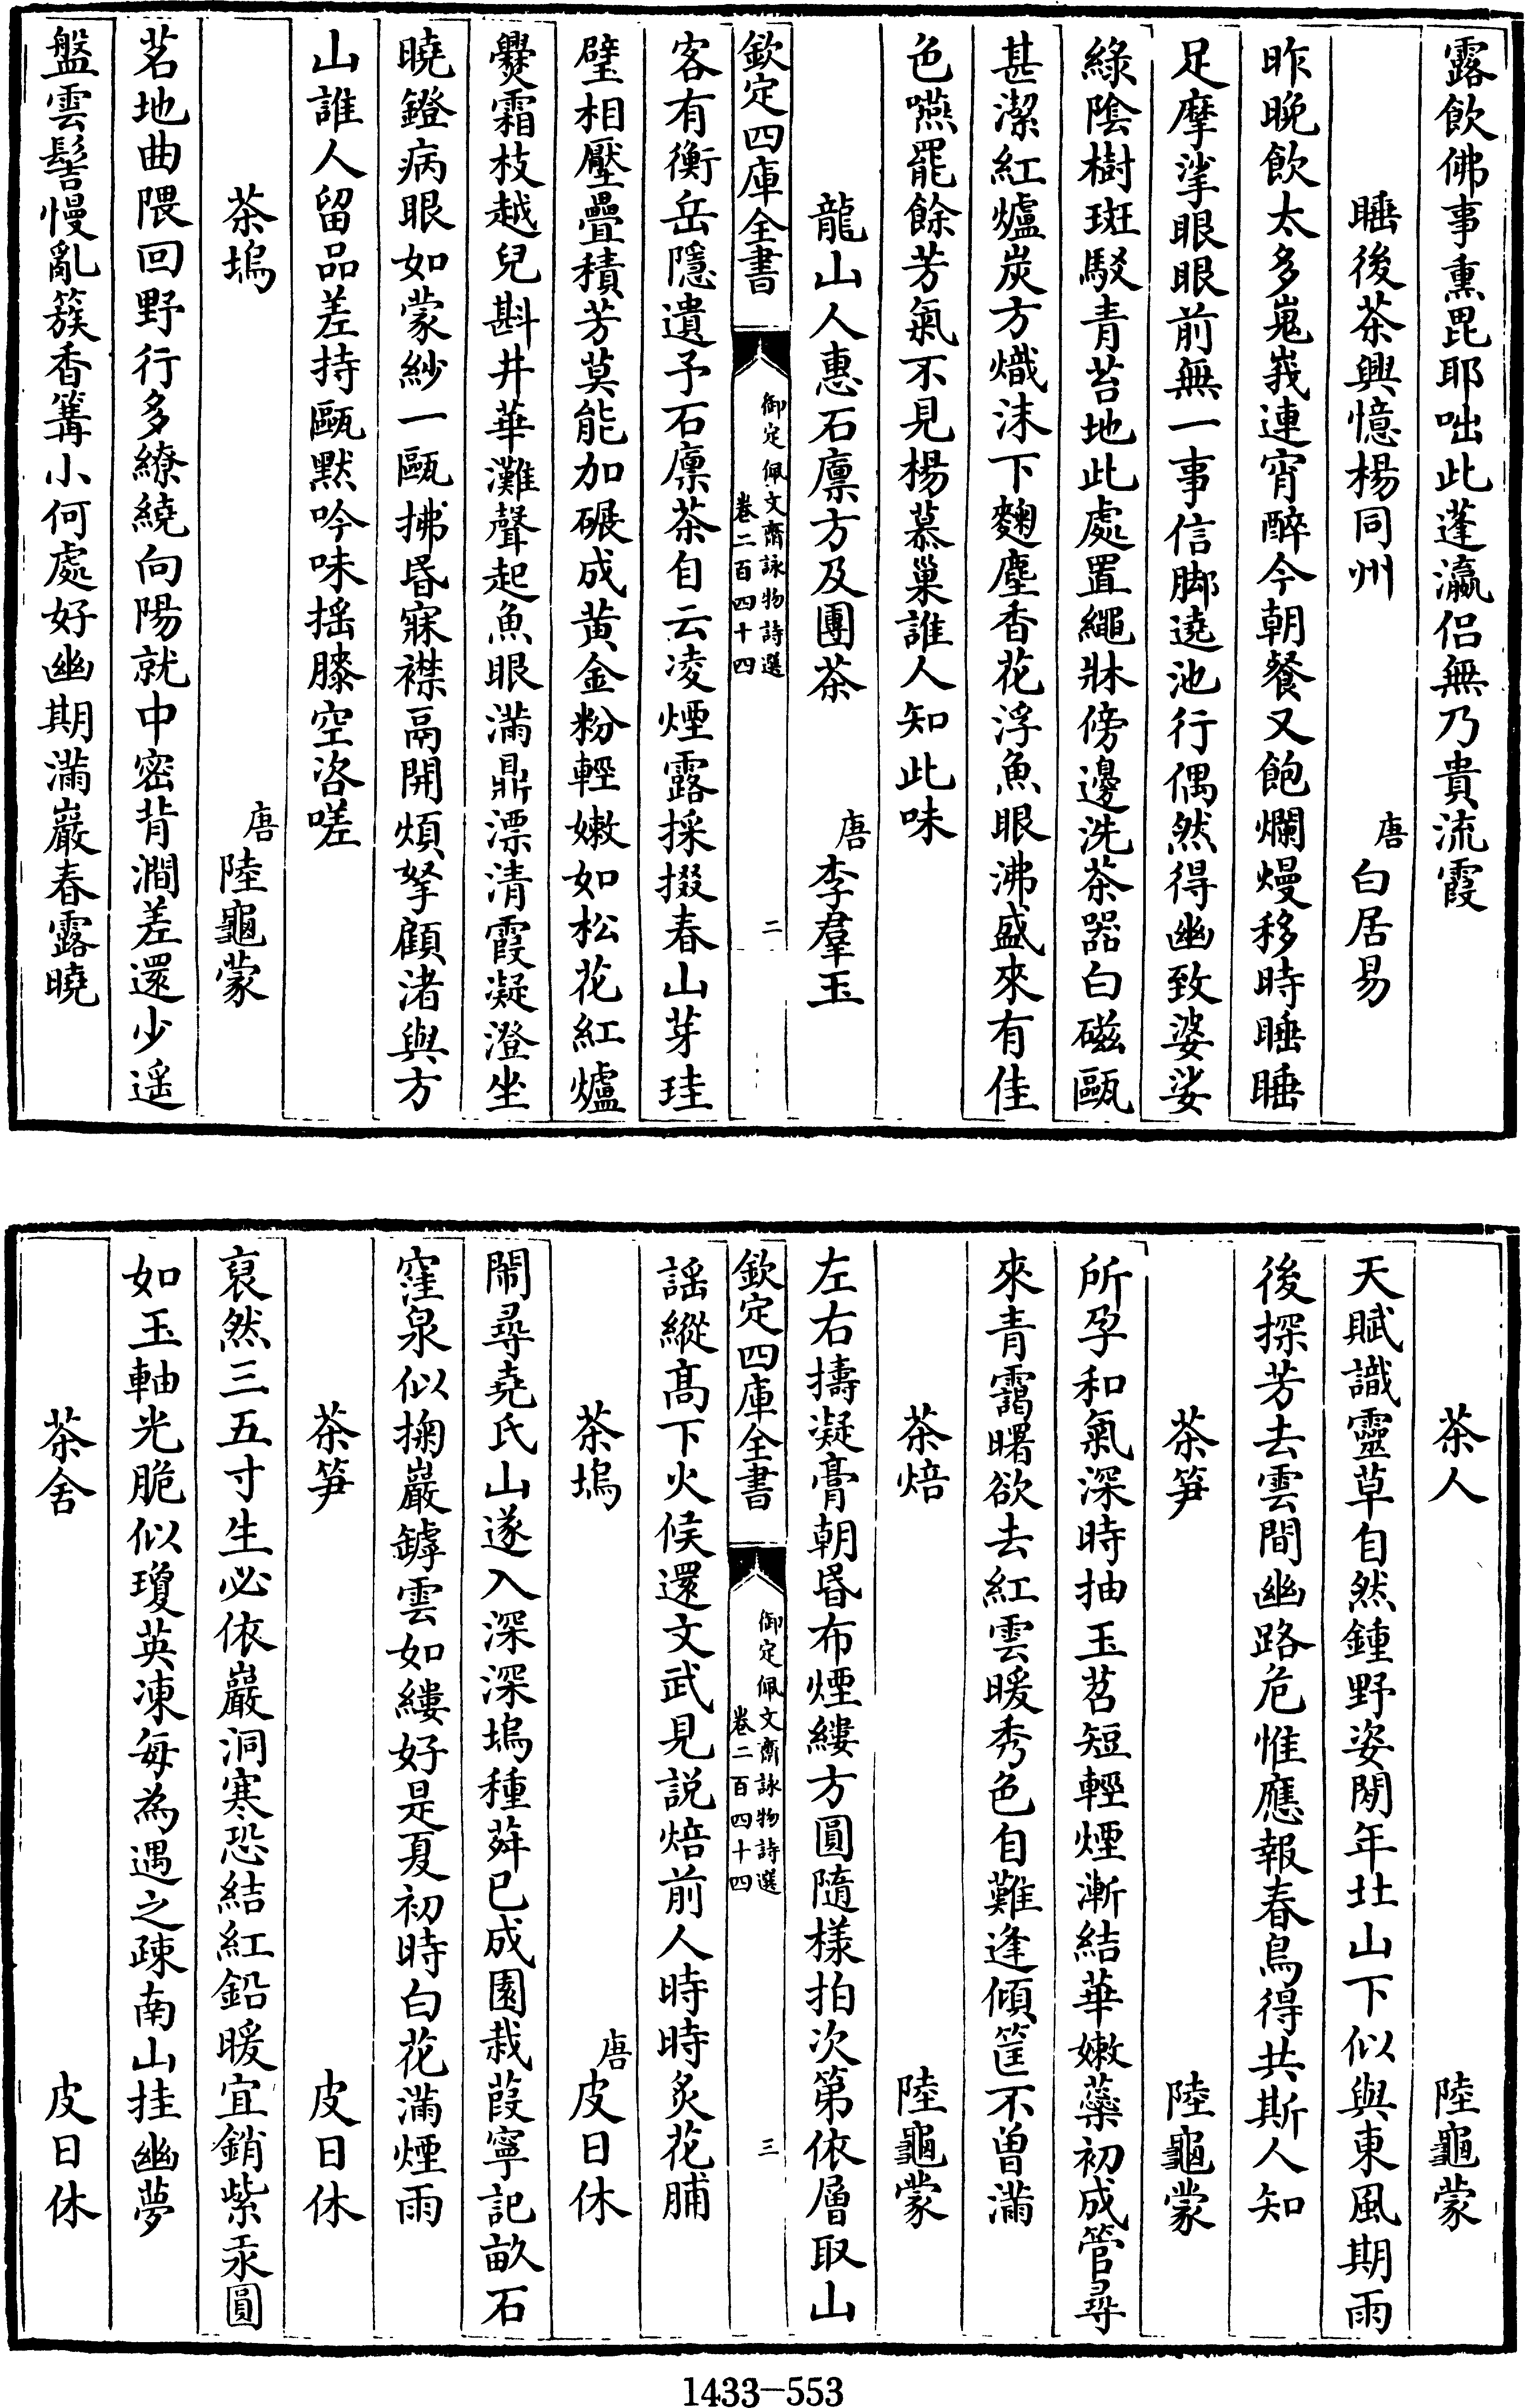 露飲佛事熏毘耶咄此蓬瀛侣無乃貴流霞
睡後茶興憶楊同州　唐白居易
昨晚飲太多嵬峩連宵醉今朝餐又飽爛熳移時睡睡
足摩挲眼眼前無一事信脚遶池行偶然得幽致婆娑
綠陰樹斑駁青苔地此處置繩牀傍邊洗茶器白磁甌
甚潔紅爐炭方熾沫下麴塵香花浮魚眼沸盛來有佳
色嚥罷餘芳氣不見楊慕巢誰人知此味
龍山人惠石廩方及團茶　唐李羣玉
欽定四庫全書　御定佩文齋詠物詩選　卷二百四十四　二
客有衡岳隱遺予石廩茶自云凌煙露採掇春山芽珪
璧相壓疊積芳莫能加碾成黃金粉輕嫩如松花紅爐
爨霜枝越兒斟井華灘聲起魚眼滿鼎漂清霞凝澄坐
曉鐙病眼如蒙紗一甌拂昏寐襟鬲開煩拏顧渚與方
山誰人留品差持甌默吟味揺膝空咨嗟
茶塢　唐陸龜蒙
茗地曲隈回野行多繚繞向陽就中密背澗差還少遥
盤雲髻慢亂簇香篝小何處好幽期滿巖春露曉
茶人　陸龜蒙
天賦識靈草自然鍾野姿閒年北山下似與東風期雨
後探芳去雲間幽路危惟應報春鳥得共斯人知
茶笋　陸龜蒙
所孕和氣深時抽玉苕短輕煙漸結華嫩蘂初成管尋
來青靄曙欲去紅雲暖秀色自難逢傾筐不曾滿
茶焙　陸龜蒙
左右擣凝膏朝昏布煙縷方圓隨樣拍次第依層取山
欽定四庫全書　御定佩文齋詠物詩選　卷二百四十四　三
謡縱髙下火候還文武見説焙前人時時炙花脯
茶塢　唐皮日休
閙尋堯氏山遂入深深塢種荈已成園栽葭寧記畝石
窪泉似掬巖罅雲如縷好是夏初時白花滿煙雨
茶笋　皮日休
裒然三五寸生必依巖洞寒恐結紅鉛暖宜銷紫汞圓
如玉軸光脆似瓊英凍每為遇之疎南山挂幽夢
茶舍　皮日休
1433—553